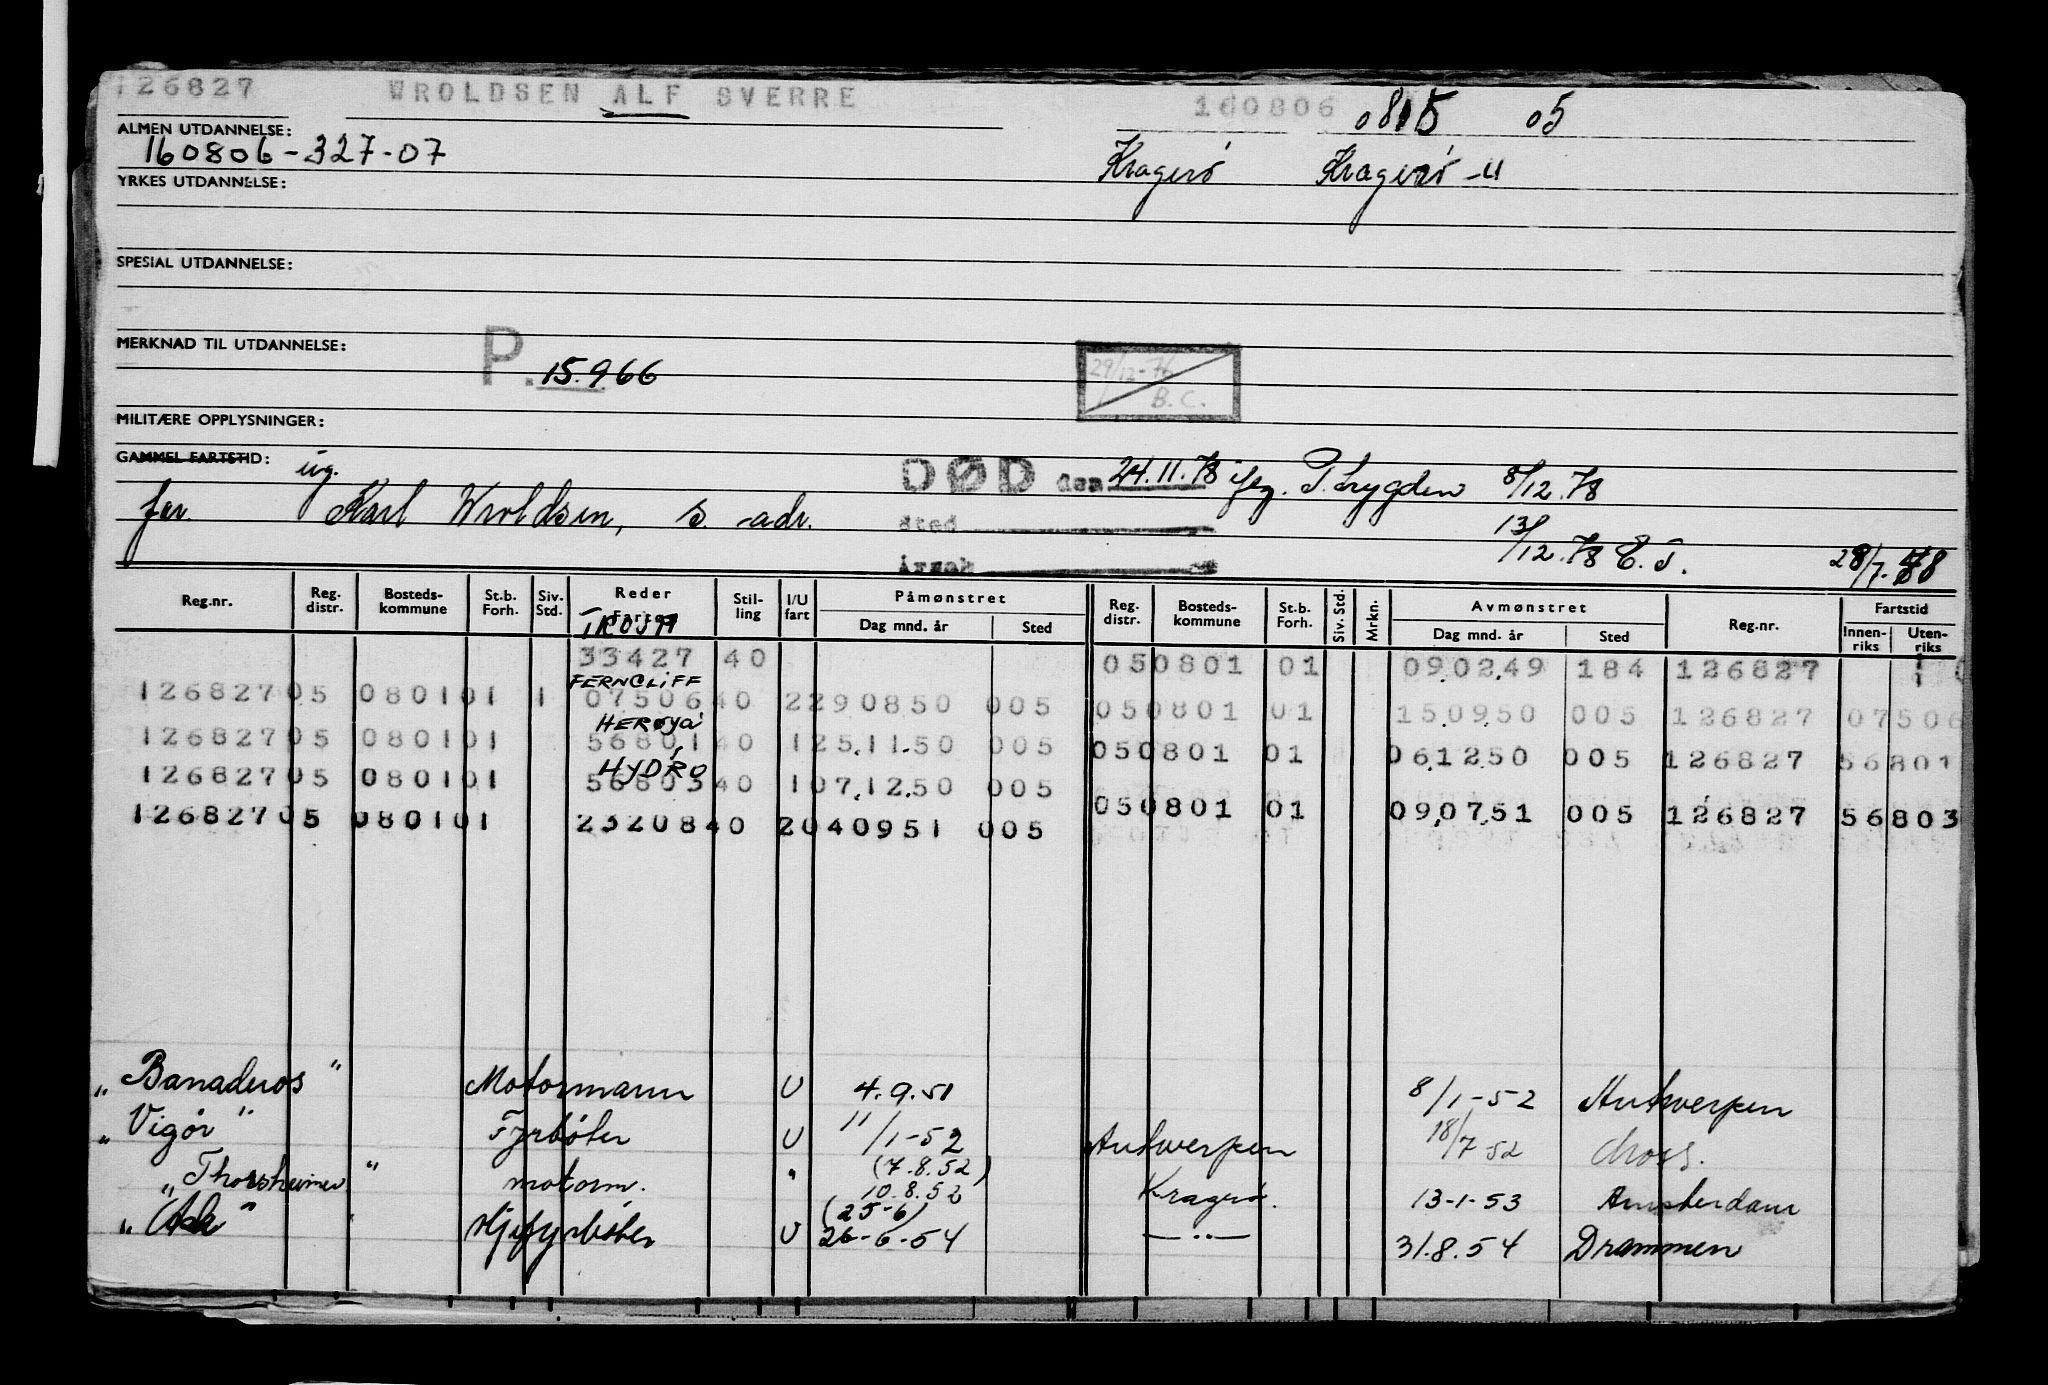 126827 WROLDSEN ALF SVERRE 160806 0815 05
ALMEN UTDANNELSE:
160806-327-07 Kragerø Kragerø -u
YRKES UTDANNELSE:
SPESIAL UTDANNELSE:
MERKNAD TIL UTDANNELSE: P. 15.966 29/12-76 B.C.
MILITÆRE OPPLYSNINGER:
GAMMEL FARTSTID: ug. DØD den 24.11.78 iflg. P.trygden 8/12.78
far. Karl Wroldsen, s. adr. sted 13/12.78 E.T. 28/7.48
årsak
Reg.nr. Reg. distr. Bosteds-kommune St.b. Forh. Siv. Std. Reder Fartøy Stil-ling I/U fart Påmønstret Dag mnd. år Sted Reg. distr. Bosteds-kommune St.b. Forh. Siv. Std. Mrkn. Avmønstret Dag mnd. år Sted Reg.nr. Fartstid Innen-riks Uten-riks
TROJA
33427 40 05 0801 01 09.02.49 184 126827 1
FERNCLIFF
126827 05 0801 01 1 07506 40 2 290850 005 05 0801 01 150950 005 126827 07506
HERØYA
126827 05 0801 01 56801 40 1 25.11.50 005 05 0801 01 061250 005 126827 56801
HYDRO
126827 05 0801 01 56803 40 1 07.12.50 005 05 0801 01 090751 005 126827 56803
126827 05 0801 01 23208 40 2 040951 005
"Banaderos" Motormann U 4.9.51 8/1-52 Antwerpen
"Vigør" Fyrbøter U 11/1-52 Antwerpen 18/7 52 Moss.
"Thorsheimer" motorm. " (7.8.52) 10.8.52 Kragerø. 13-1-53 Amsterdam
"Ask" Hjefyrbøter U (25-6) 26-6-54 —"— 31.8.54 Drammen